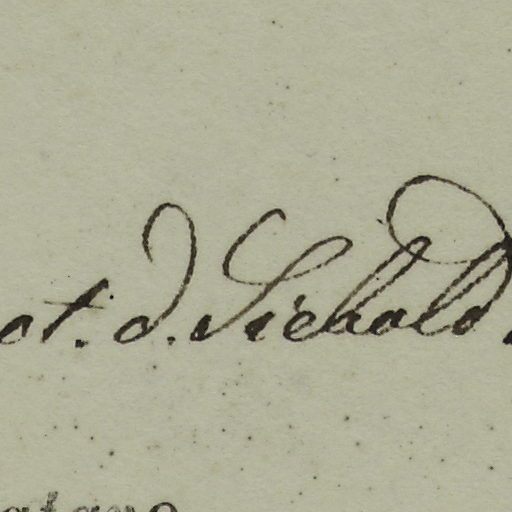 ot. d. Siebold.